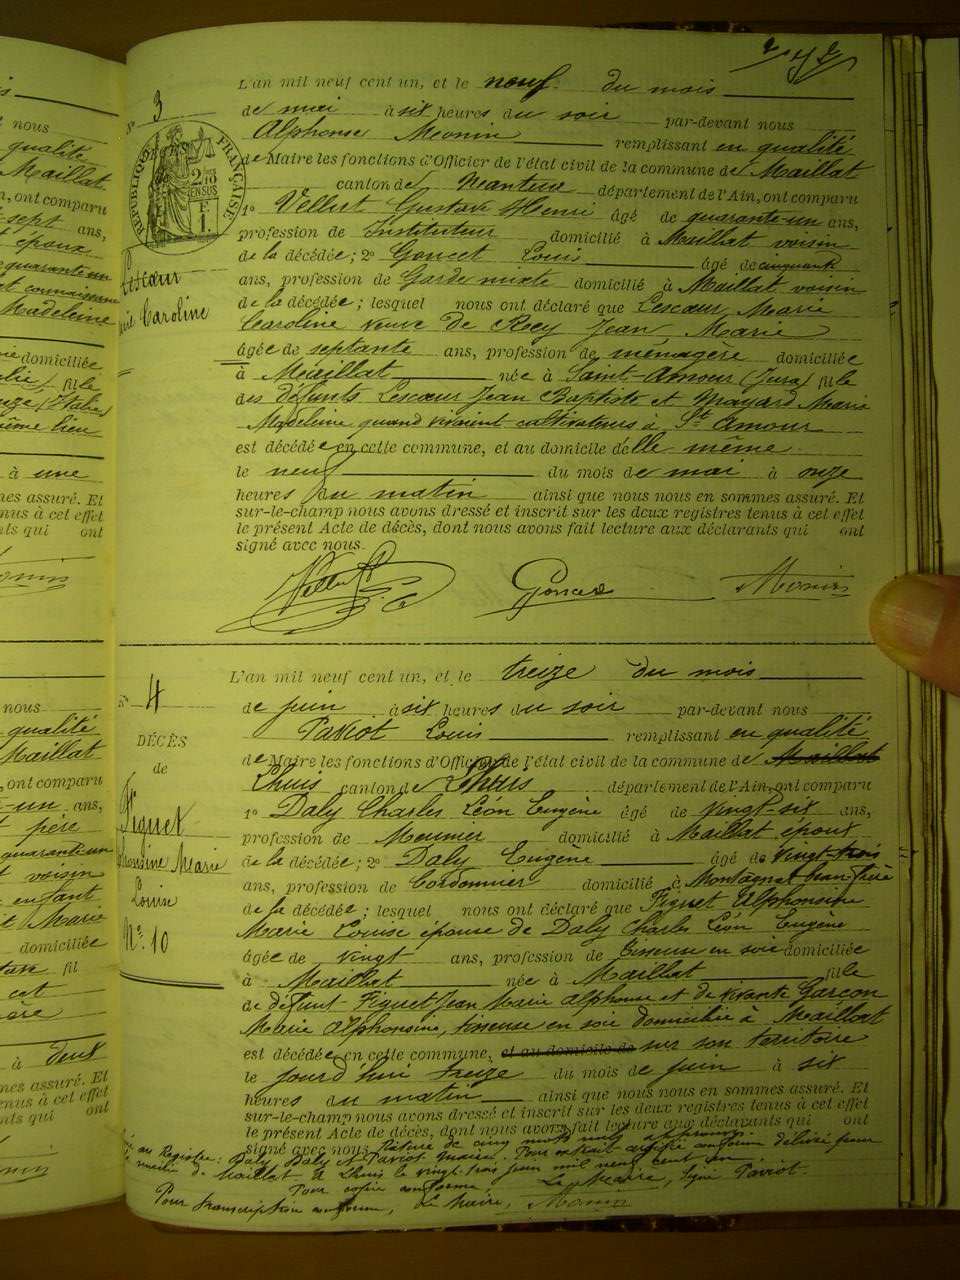 nous
qualité
Maillat
n, ont comparu
-sept ans,
époux
quarante-un
connaissan
Madeleine
domiciliée
fille
même lieu
à une
mes assuré. Et
tenus à cet effet
ts qui ont
nous
qualité
Maillat
, ont comparu
-un ans,
père
quarante-un
voisin
enfant
Marie
domiciliée
fil
est
à deux
mes assuré. Et
tenus à cet effet
ts qui ont
N° 3
RÉPUBLIQUE FRANÇAISE
2/10 EN SUS
Lescœur
Marie Caroline
L'an mil neuf cent un, et le neuf du mois
de mai à six heures du soir par-devant nous
Alphonse Monin remplissant en qualité
de Maire les fonctions d'Officier de l'état civil de la commune de Maillat
canton de Nantua département de l'Ain, ont comparu
1° Vellut Gustave Henri âgé de quarante-un ans,
profession de Instituteur domicilié à Maillat voisin
de la décédée; 2° Goncet Louis âgé de cinquante
ans, profession de Garde mixte domicilié à Maillat voisin
de la décédée; lesquel nous ont déclaré que Lescœur Marie
Caroline veuve de Recy Jean Marie
âgée de septante ans, profession de ménagère domiciliée
à Maillat née à Saint-Amour (Jura) fille
des défunts Lescœur Jean Baptiste et Mayard Marie
Madeleine quand vivaient cultivateurs à St Amour
est décédée en cette commune, et au domicile d'elle même
le neuf du mois de mai à onze
heures du matin ainsi que nous nous en sommes assuré. Et
sur-le-champ nous avons dressé et inscrit sur les deux registres tenus à cet effet
le présent Acte de décès, dont nous avons fait lecture aux déclarants qui ont
signé avec nous.
Vellut Goncet Monin
N° 4
DÉCÈS
de
Figuet
Alphonsine Marie
Louise
N°. 10
L'an mil neuf cent un, et le treize du mois
de juin à six heures du soir par-devant nous
Pariot Louis remplissant en qualité
de Maire les fonctions d'Officier de l'état civil de la commune de Maillat
Lhuis canton de Lhuis département de l'Ain, ont comparu
1° Daly Charles Léon Eugène âgé de vingt-six ans,
profession de Meunier domicilié à Maillat époux
de la décédée; 2° Daly Eugène âgé de vingt-trois
ans, profession de Cordonnier domicilié à Montagnat beau-frère
de la décédée; lesquel nous ont déclaré que Figuet Alphonsine
Marie Louise épouse de Daly Charles Léon Eugène
âgée de vingt ans, profession de tisseuse en soie domiciliée
à Maillat née à Maillat fille
de défunt Figuet Jean Marie Alphonse et de vivante Garçon
Marie Alphonsine, tisseuse en soie domiciliée à Maillat
est décédée en cette commune, et au domicile de sur son territoire
le jourd'hui treize du mois de juin à six
heures du matin ainsi que nous nous en sommes assuré. Et
sur-le-champ nous avons dressé et inscrit sur les deux registres tenus à cet effet
le présent Acte de décès, dont nous avons fait lecture aux déclarants qui ont
signé avec nous. Rature de cinq mots nuls approuvée
au Registre: Daly, Daly et Pariot Maire. Pour extrait certifié conforme délivré pour
Maillat à Lhuis le vingt-trois juin mil neuf cent un
Pour copie conforme, Le Maire, Signé Pariot.
Pour transcription conforme, Le Maire, Monin